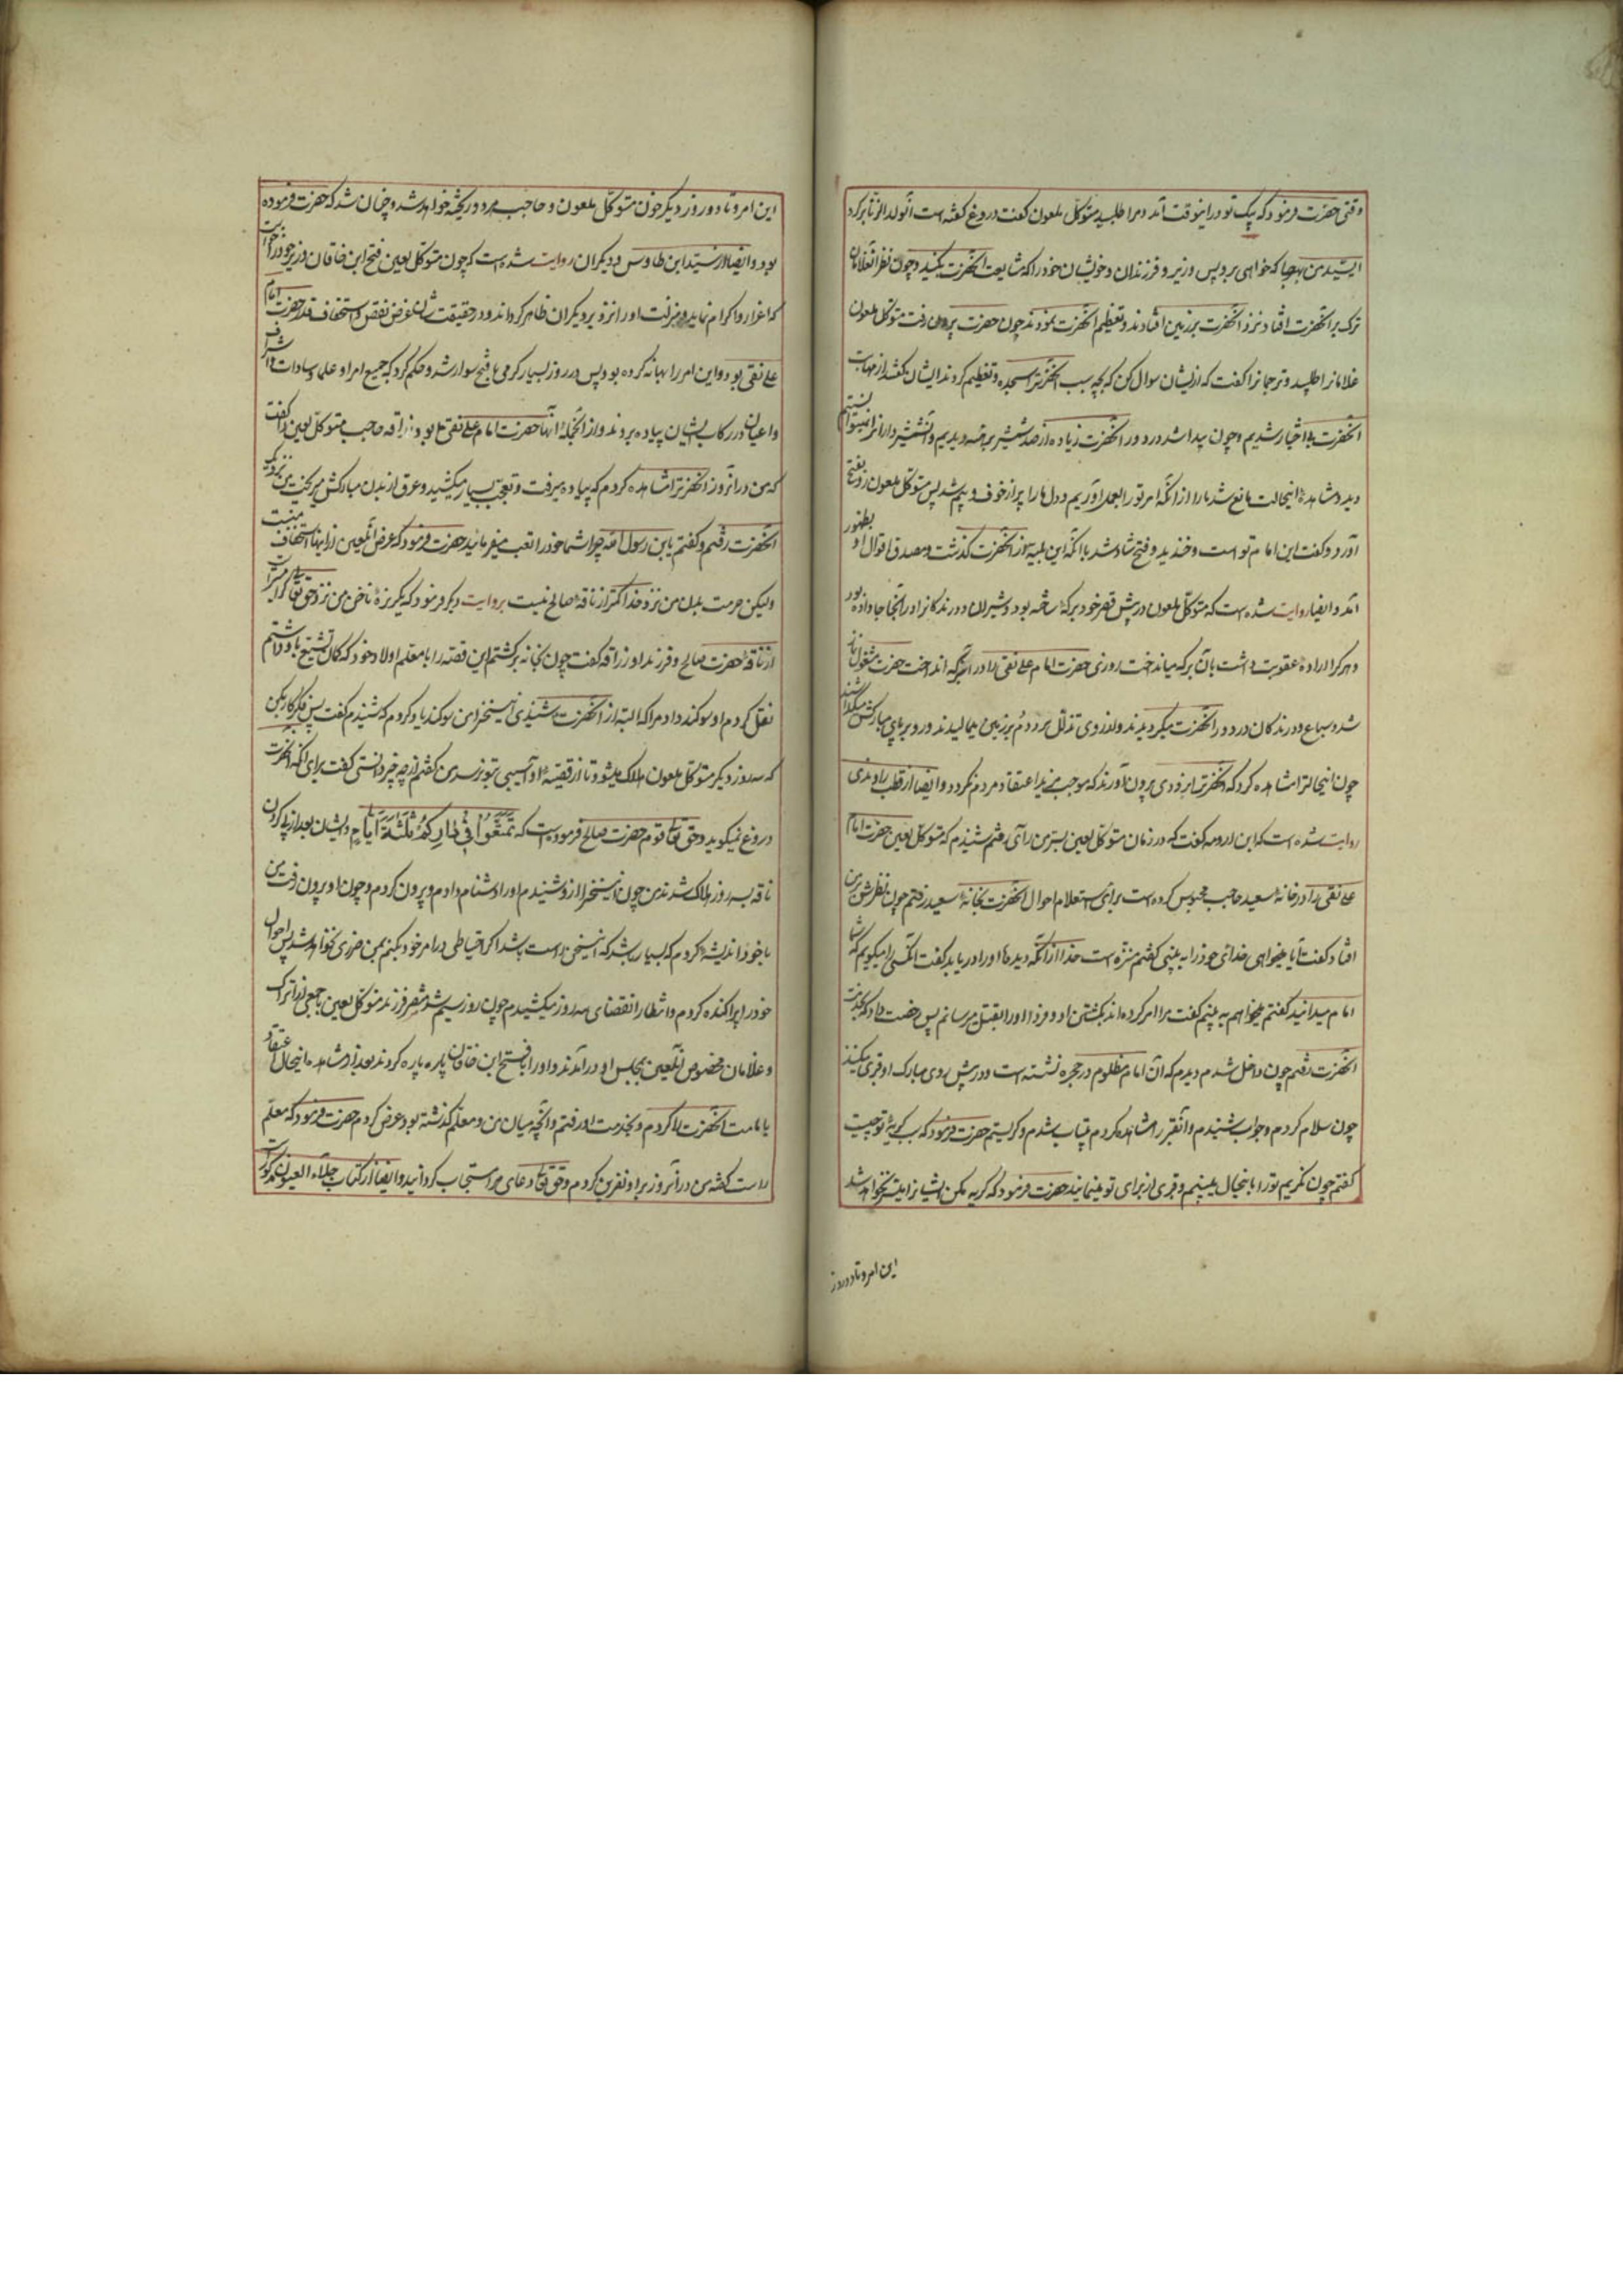 وقتی حضرت فرمود که پیک تو درینوقت آمد و مرا طلبید متوکل ملعون گفت دروغ گفته است آنولدالزنا برگرد
ای سید من بهرجا که خواهی برو پس وزیر و فرزندان و خویشان خود را که مشایعت آنحضرت بکنید و چون نظر آنغلامان
ترک بر آنحضرت افتاد نزد آنحضرت بر زمین افتادند و تعظیم آنحضرت نمودند چون حضرت بیرون رفت متوکل ملعون
غلامانرا طلبید و ترجمانرا گفت که از ایشان سوال کن که بچه سبب آنحضرترا سجده و تعظیم کردند ایشان گفتند از مهابت
آنحضرت بی اختیار شدیم و چون پیدا شد در دور آنحضرت زیاده از صد شمشیر برهنه دیدیم و آن شمشیردارانرا نمیتوانستیم
دید و مشاهده اینحالت مانع شد ما را از آنکه امر تو را بعمل آوریم و دل ما را پر از خوف و بیم شد پس متوکل ملعون رو بفتح
آورد و گفت این امام تو است و خندید و فتح شاد شد بآنکه این بلیه از آنحضرت گذشت و مصدق اقوال او بظهور
آمد و ایضا روایت شده است که متوکل ملعون در پیش قصر خود برکه ساخته بود و شیران و درندگانرا در آنجا جا داده بود
و هر کرا اراده عقوبت داشت بآن برکه میانداخت روزی حضرت امام علی نقی را در آن برکه انداخت حضرت مشغول نماز
شد و سباع و درندگان در دور آنحضرت میگردیدند و از روی تذلل سر و دم بر زمین میمالیدند و رو بر پای مبارکش میگذاشتند
چون اینحالترا مشاهده کرد که آنحضرترا بزودی بیرون آورند که موجب مزید اعتقاد مردم نگردد و ایضا از قطب راوندی
روایت شده است که ابن ارومه گفت که در زمان متوکل لعین بسرمن رآی رفتم شنیدم که متوکل لعین حضرت امام
علی نقی را در خانه سعید حاجب محبوس کرده است برای استعلام احوال آنحضرت بخانه سعید رفتم چون نظرش بر من
افتاد گفت آیا میخواهی خدای خود را به بینی گفتم منزه است خدا از آنکه دیده‌ها او را دریابد گفت آنکسی را میگویم که شما
امام میدانید گفتم میخواهم به بینم گفت مرا امر کرده‌اند بکشتن او و فردا او را بقتل میرسانم پس رخصت داد که بخدمت
آنحضرت رفتم چون داخل شدم دیدم که آن امام مظلوم در حجره نشسته است و در پیش روی مبارک او قبری میکنند
چون سلام کردم و جواب شنیدم و آنقبر را مشاهده کردم بیتاب شدم و گریستم حضرت فرمود که سبب گریه تو چیست
گفتم چون نگریم تو را باینحال میبینم و قبری از برای تو مینمایند حضرت فرمود که گریه مکن ایشانرا میسر نخواهد شد
این امر و تا دو روز
این امر و تا دو روز دیگر خون متوکل ملعون و حاجب مردود ریخته خواهد شد و چنان شد که حضرت فرموده
بود و ایضا از سید ابن طاوس و دیگران روایت شده است که چون متوکل لعین فتح ابن خاقان وزیر خود را خواست
که اعزاز و اکرام نماید و منزلت او را نزد بر دیگران ظاهر گرداند و در حقیقت غرض نقص و استخفاف قدر حضرت امام
علی نقی بود و این امر را بهانه کرده بود پس در روز بسیار گرمی با فتح سوار شد و حکم کرد که جمیع امرا و علما و سادات و اشراف
و اعیان در رکاب ایشان پیاده بروند و از آنجمله آنها حضرت امام علی نقی ع بود زراقه حاجب متوکل لعین گفت
که من در آنروز آنحضرترا مشاهده کردم که پیاده میرفت و تعب بسیار میکشید و عرق از بدن مبارکش میریخت من نزدیک
آنحضرت رفتم و گفتم یابن رسول الله چرا شما خود را تعب میفرمائید حضرت فرمود که غرض آنلعین از اینها استخفاف منست
ولیکن حرمت بدن من نزد خدا کمتر از ناقه صالح نیست بروایت دیگر فرمود که یکریزه ناخن من نزد حق تعالی گرامیتر است
از ناقه حضرت صالح و فرزند او زراقه گفت چون بخانه برگشتم این قصه را با معلم اولاد خود که گمان تشیع باو داشتم
نقل کردم او سوگند داد مرا که البته از آنحضرت شنیدی اینسخنرا من سوگند یاد کردم که شنیدم گفت پس فکر کار بکن
که سه روز دیگر متوکل ملعون هلاک میشود تا از قصه او آسیبی بتو نرسد من گفتم از چه خبر دانستی گفت برای آنکه آنحضرت
دروغ نمیگوید و حق تعالی در قصه قوم حضرت صالح فرموده است که تَمَتَّعُوا فِی دَارِکُمْ ثَلٰثَةَ اَیَّامٍ و ایشان بعد از پی کردن
ناقه بسه روز هلاک شدند من چون اینسخنرا از او شنیدم او را دشنام دادم و بیرون کردم و چون او بیرون رفت من
با خود اندیشه کردم که بسیار باشد که اینسخن راست باشد اگر احتیاطی در امر خود بکنم بمن ضرری نخواهد شد پس اموال
خود را پراکنده کردم و انتظار انقضای سه روز میکشیدم چون روز سیم شد منتصر فرزند متوکل لعین با جمعی از اتراک
و غلامان مخصوص آنلعین بمجلس او درآمدند و او را با فتح ابن خاقان پاره پاره کردند بعد از مشاهده اینحال اعتقاد
بامامت آنحضرت کردم و بخدمت او رفتم و آنچه میان من و معلم گذشته بود عرض کردم حضرت فرمود که معلم
راست گفته من در آنروز بر او نفرین کردم و حق تعالی دعای مرا مستجاب گردانید و ایضا از کتاب جلاء العیون مذکور است